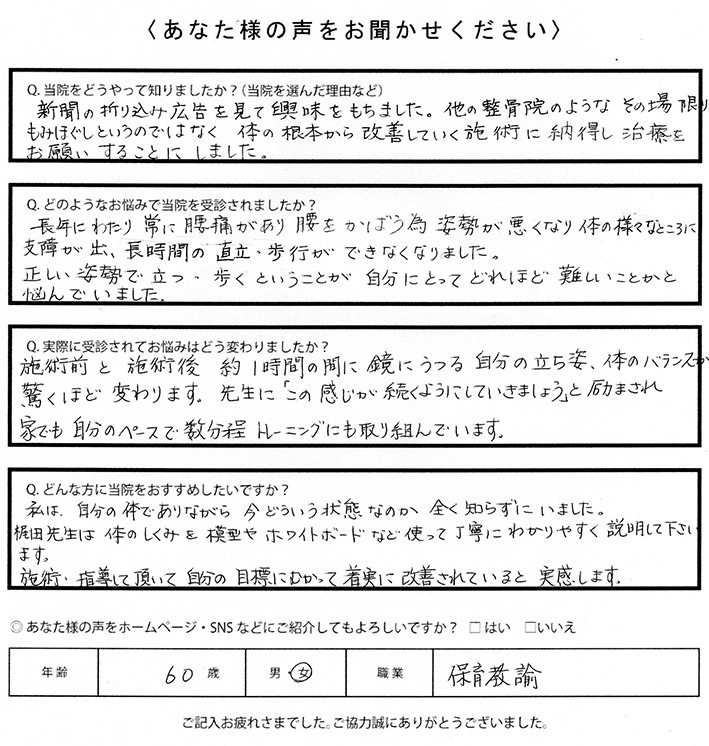 〈あなた様の声をお聞かせください〉
Q. 当院をどうやって知りましたか？（当院を選んだ理由など）
新聞の折り込み広告を見て興味をもちました。他の整骨院のような その場限り
もみほぐしというのではなく 体の根本から改善していく施術に納得し治療を
お願いすることにしました。
Q. どのようなお悩みで当院を受診されましたか？
長年にわたり常に腰痛があり腰をかばう為姿勢が悪くなり体の様々なところに
支障が出、長時間の直立・歩行ができなくなりました。
正しい姿勢で立つ・歩くということが自分にとってどれほど難しいことかと
悩んでいました。
Q. 実際に受診されてお悩みはどう変わりましたか？
施術前と施術後 約1時間の間に鏡にうつる自分の立ち姿、体のバランスが
驚くほど変わります。先生に「この感じが続くようにしていきましょう」と励まされ
家でも自分のペースで数分程トレーニングにも取り組んでいます。
Q. どんな方に当院をおすすめしたいですか？
私は、自分の体でありながら今どういう状態なのか全く知らずにいました。
梶田先生は体のしくみを模型やホワイトボードなど使って丁寧にわかりやすく説明して下さい
ます。
施術・指導して頂いて自分の目標にむかって着実に改善されていると実感します。
◎ あなた様の声をホームページ・SNSなどにご紹介してもよろしいですか？ □はい □いいえ
年齢 60歳 男・女 職業 保育教諭
ご記入お疲れさまでした。ご協力誠にありがとうございました。